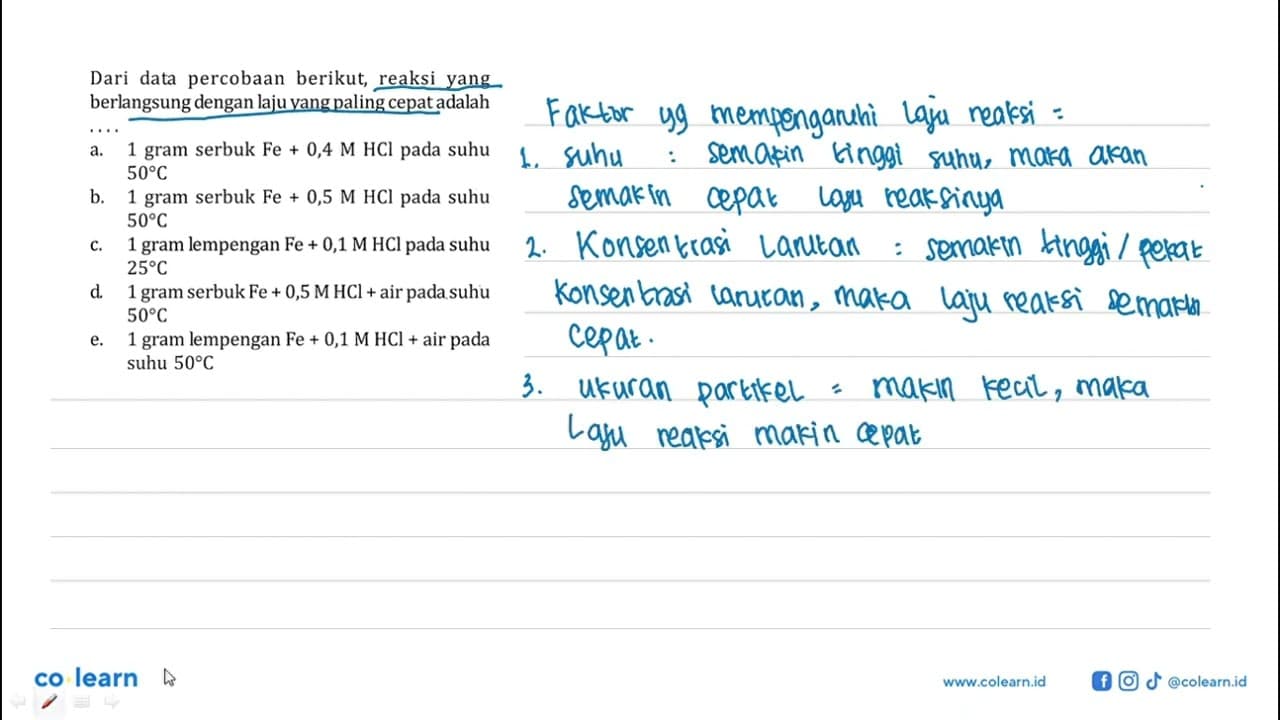 Dari data percobaan berikut, reaksi yang
berlangsung dengan laju yang paling cepat adalah
....
a. 1 gram serbuk Fe + 0,4 M HCl pada suhu
50°C
b. 1 gram serbuk Fe + 0,5 M HCl pada suhu
50°C
c. 1 gram lempengan Fe + 0,1 M HCl pada suhu
25°C
d. 1 gram serbuk Fe + 0,5 M HCl + air pada suhu
50°C
e. 1 gram lempengan Fe + 0,1 M HCl + air pada
suhu 50°C
Faktor yg mempengaruhi laju reaksi =
1. suhu : semakin tinggi suhu, maka akan
semakin cepat laju reaksinya
2. Konsentrasi Larutan : semakin tinggi / pekat
konsentrasi larutan, maka laju reaksi semakin
cepat.
3. ukuran partikel = makin kecil, maka
Laju reaksi makin cepat
co learn
www.colearn.id
@colearn.id